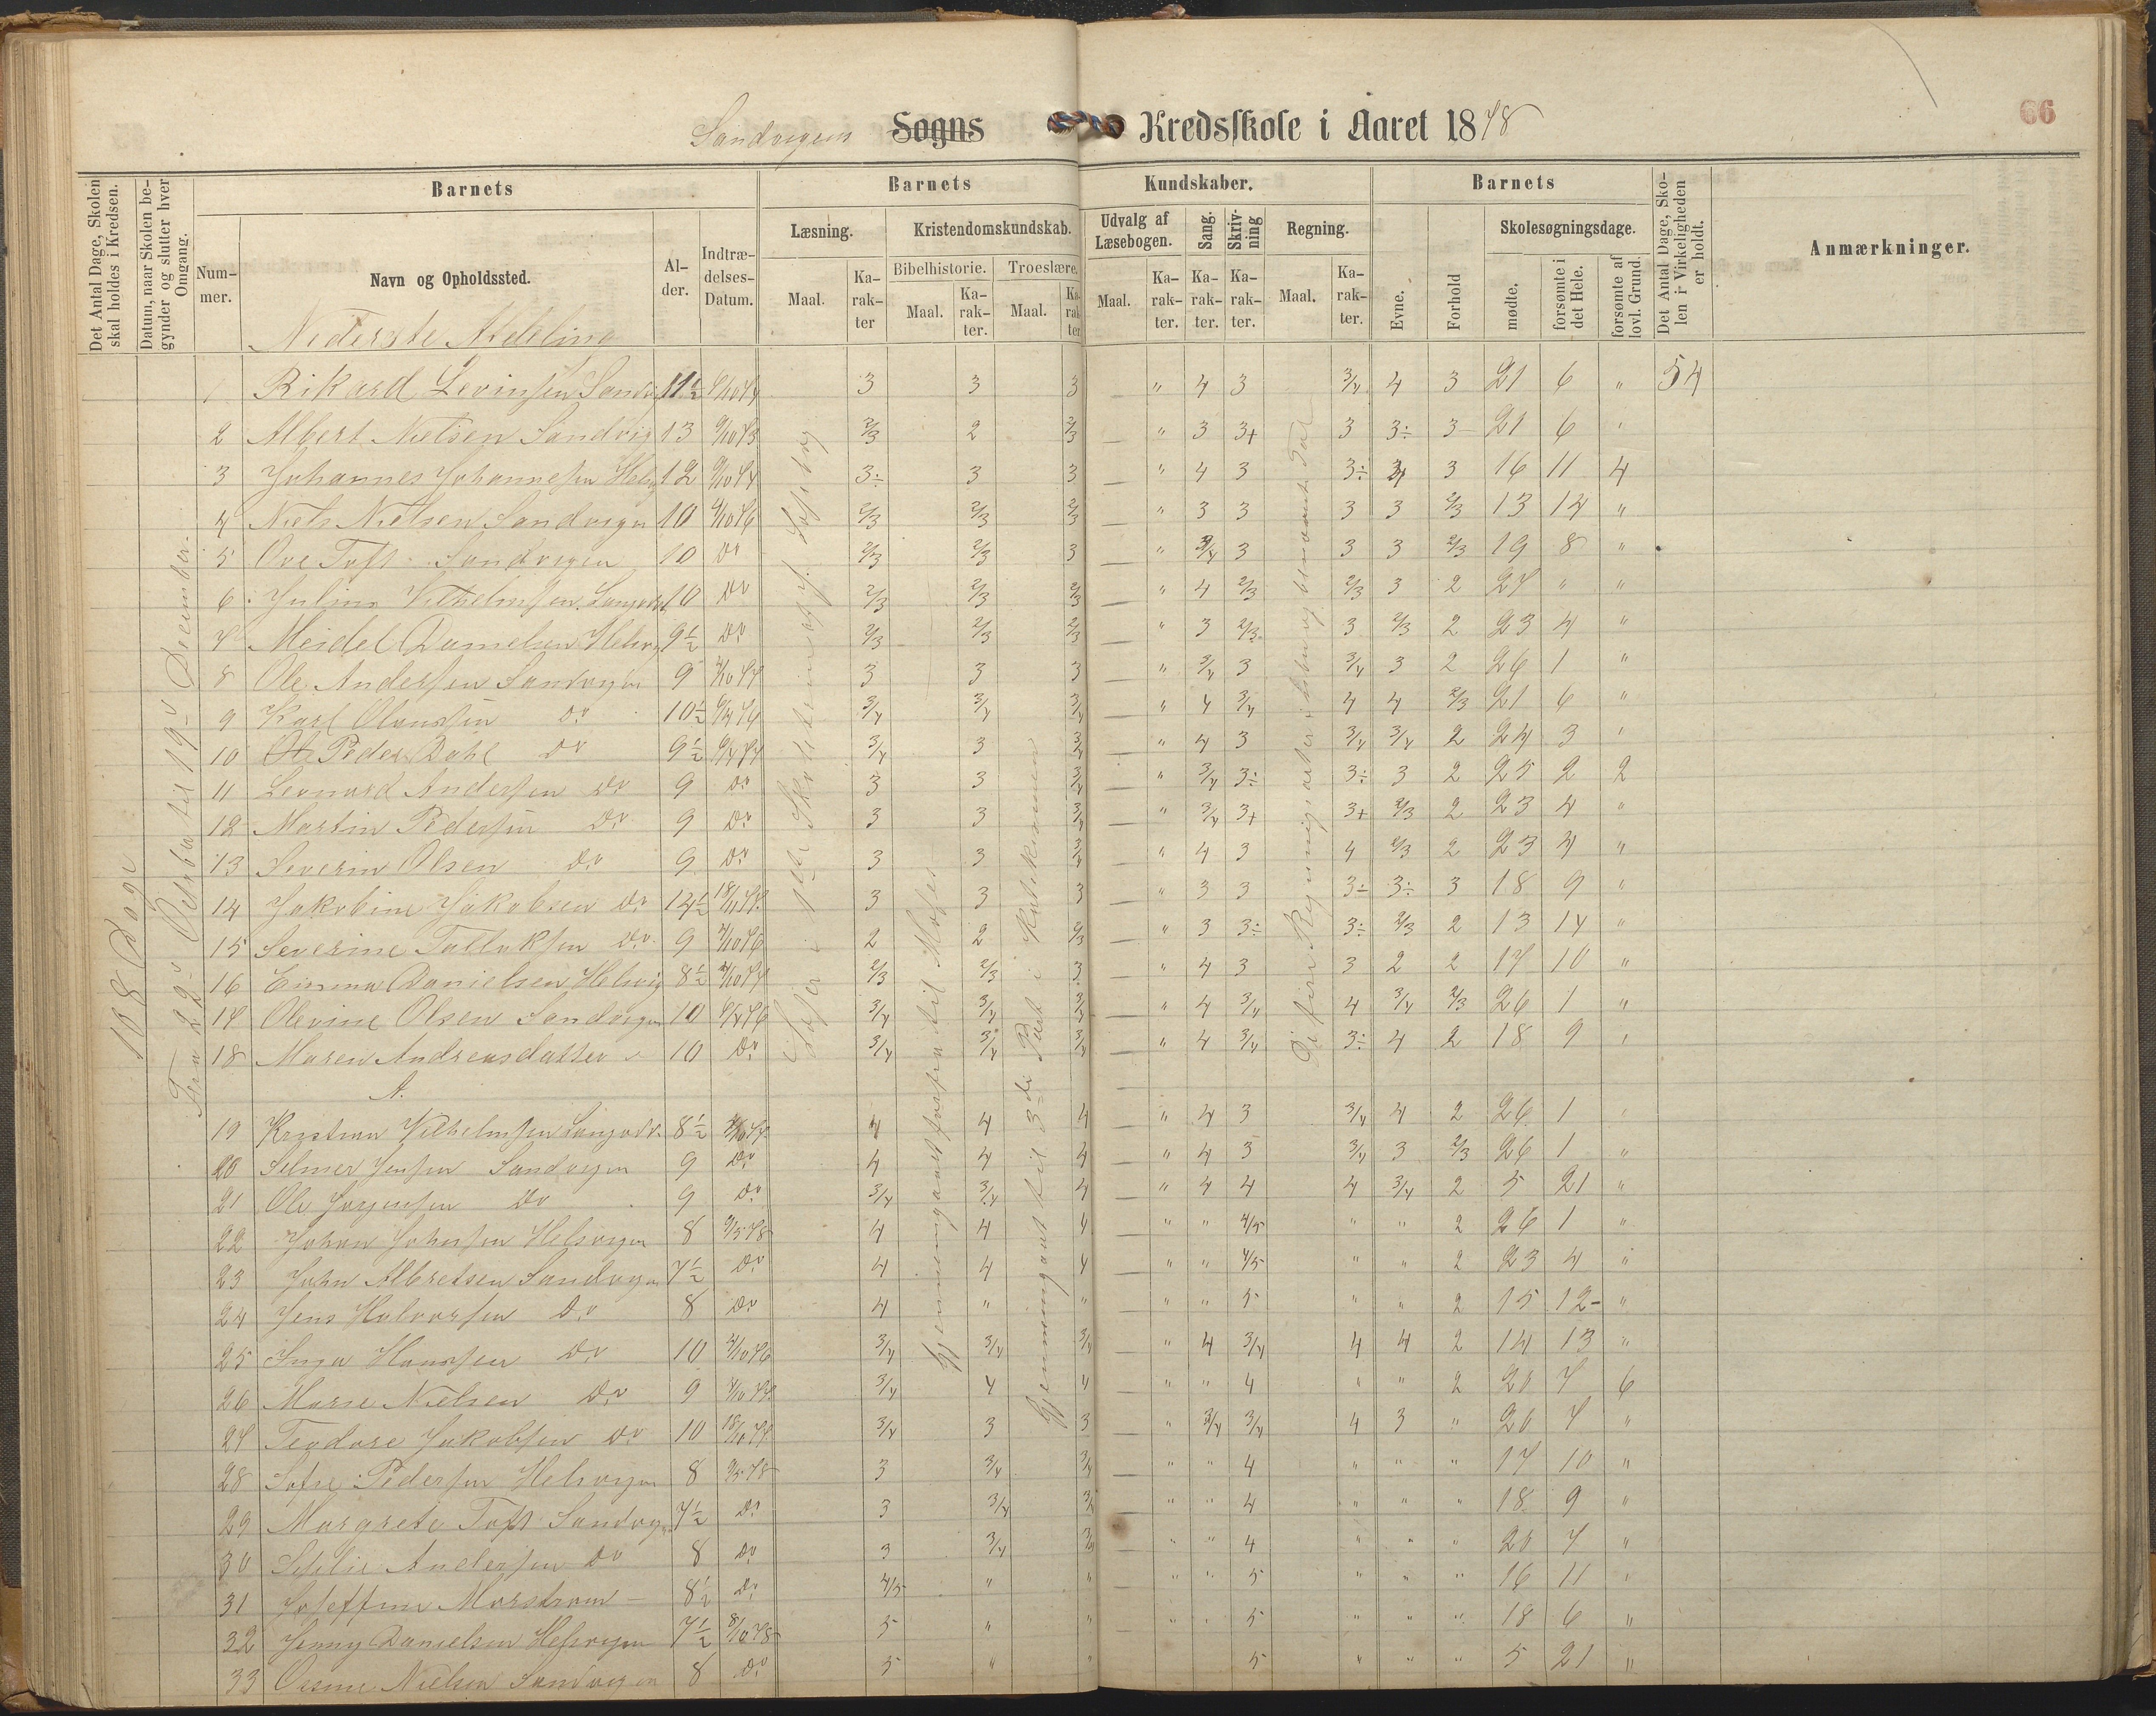 66
Sandvigens Sogns Kredsskole i Aaret 1878
Det Antal Dage, Skolen skal holdes i Kredsen.
Datum, naar Skolen begynder og slutter hver Omgang.
Barnets
Num-mer.
Navn og Opholdssted.
Al-der.
Indtræ-delses-Datum.
Barnets Kundskaber.
Læsning.
Maal.
Ka-rak-ter
Kristendomskundskab.
Bibelhistorie.
Maal.
Ka-rak-ter.
Troeslære.
Maal.
Ka-rak-ter
Udvalg af Læsebogen.
Maal.
Ka-rak-ter.
Sang.
Ka-rak-ter.
Skriv-ning
Ka-rak-ter.
Regning.
Maal.
Ka-rak-ter.
Barnets
Evne.
Forhold
Skolesøgningsdage.
mødte.
forsømte i det Hele.
forsømte af lovl. Grund.
Det Antal Dage, Sko-len i Virkeligheden er holdt.
Anmærkninger.
108 Dage
Fra 22d Oktober til 19d December.
Nederste Afdeling
1 Rikard Levinsen Sandvig 11½ 3 3 3 " 4 3 3/4 4 3 21 6 " 54
2 Albert Nielsen Sandvig 13 9/10 73 2/3 2 2/3 " 3 3+ 3 3÷ 3 21 6 "
3 Johannes Johannesen Helvig 12 9/10 74 3÷ 3 3 " 4 3 3÷ 3 16 11 4
4 Niels Nielsen Sandvigen 10 4/10 76 2/3 2/3 2/3 " 3 3 3 3 2/3 13 14 "
5 Ove Toft Sandvigen 10 Do 2/3 2/3 3 " 3/4 3 3 3 2/3 19 8 "
6 Julius Vilhelmsen 10 Do 2/3 2/3 2/3 " 4 2/3 2/3 3 2 27 " "
7 Meidel Danielsen Helvig 9½ Do 2/3 2/3 2/3 " 3 2/3 3 2/3 2 23 4 "
8 Ole Andersen Sandvigen 9 3 3 3 " 3/4 3 3/4 3 2 26 1 "
9 Karl Olausen Do 10½ 3/4 3/4 3/4 " 4 3/4 4 4 2/3 21 6 "
10 Peder Dahl Do 9½ 3/4 3 3/4 " 4 3 3/4 3/4 2 24 3 "
11 Leonard Andersen Do 9 Do 3 3 3/4 " 3/4 3÷ 3÷ 3 2 25 2 2
12 Martin Pedersen Do 9 Do 3 3 3/4 " 3/4 3+ 3+ 2/3 2 23 4 "
13 Severin Olsen Do 9 Do 3 3 3/4 " 4 3 4 2/3 2 23 4 "
14 Jakobine Jakobsen Do 12½ 3 3 3 " 3 3 3÷ 3÷ 3 18 9 "
15 Severine Tallaksen Do 9 2 2 2/3 " 3 3÷ 3÷ 2/3 2 13 14 "
16 Emma Danielsen Helvig 8½ 2/3 2/3 3 " 4 3 3 2 2 17 10 "
17 Olevine Olsen Sandvigen 10 3/4 3/4 3/4 " 4 3/4 4 3/4 2/3 26 1 "
18 Maren Andreasdatter 10 Do 3/4 3/4 3/4 " 4 3/4 3÷ 4 2 18 9 "
A.
19 Kristian Vilhelmsen 8½ 4 4 4 " 4 3 3/4 4 2 26 1 "
20 Selmer Jensen Sandvigen 9 Do 4 4 4 " 4 3 3/4 3 2/3 26 1 "
21 Ole Jørgensen Do 9 Do 3/4 3/4 4 " 4 4 4 3/4 2 5 21 "
22 Johan Johnsen Helvigen 8 9/5 78 4 4 4 " " 4/5 " " 2 26 1 "
23 John Albretsen Sandvigen 7½ Do 4 4 4 " " 4/5 " " 2 23 4 "
24 Jens Halvorsen Do 8 Do 4 " " " " 5 " " 2 15 12 "
25 Inga Hansen Do 10 4/10 76 3/4 3/4 3/4 " 4 3/4 4 4 2 14 13 "
26 Marie Nielsen Do 9 3/4 4 4 " " 4 " " 2 20 7 6
27 Teodore Jakobsen Do 10 3/4 3 3 " 3/4 3/4 4 3 " 20 7 "
28 Sofie Pedersen Helvigen 8 9/5 78 3 3/4 3/4 " " 4 " " " 17 10 "
29 Margrete Toft Sandvigen 7½ Do 3 3/4 3/4 " " 4 " " " 18 9 "
30 Andersen Do 8 Do 3 3/4 3/4 " " 4 " " " 20 7 "
31 Joseffine Marstrøm 8½ Do 4/5 " " " " 5 " " " 16 11 "
32 Jenny Danielsen Helvigen 7½ 8/10 78 5 " " " " 5 " " " 18 6 "
33 Nielsen Sandvigen 8 Do 5 " " 5 " " " 5 21 "
Gjennemgaaet til Moses
Gjennemgaaet til 3die Part i Katekismen
De fire Regningsarter i hele og benævnte Tal